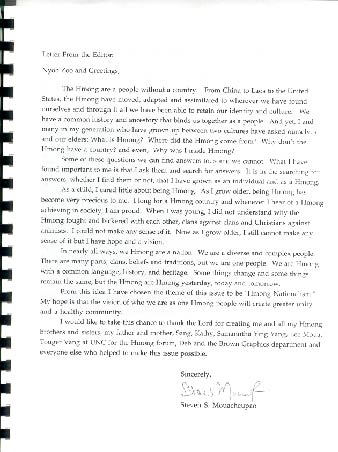 Letter From the Editor:
Nyob Zoo and Greetings,
The Hmong are a people without a country. From China to Laos to the United
States, the Hmong have moved, adapted and assimilated to wherever we have found
ourselves and through it all we have been able to retain our identity and culture. We
have a common history and ancestory that binds us together as a people. And yet, I and
many in my generation who have grown up between two cultures have asked ourselves
and our elders: What is Hmong? Where did the Hmong come from? Why don't the
Hmong have a country? and even, Why was I made Hmong?
Some of these questions we can find answers to, some we cannot. What I have
found important to me is that I ask them and search for answers. It is in the searching for
answers, whether I find them or not, that I have grown as an individual and as a Hmong.
As a child, I cared little about being Hmong. As I grow older, being Hmong has
become very precious to me. I long for a Hmong country and whenever I hear of a Hmong
achieving in society, I am proud. When I was young, I did not understand why the
Hmong fought and bickered with each other, clans against clans and Christians against
animists. I could not make any sense of it. Now as I grow older, I still cannot make any
sense of it but I have hope and a vision.
In nearly all ways, we Hmong are a nation. We are a diverse and complex people.
There are many parts, clans, beliefs and traditions, but we are one people. We are Hmong
with a common language, history, and heritage. Some things change and some things
remain the same, but the Hmong are Hmong yesterday, today and tomorrow.
From this idea I have chosen the theme of this issue to be "Hmong Nationalism."
My hope is that the vision of who we are as one Hmong people will create greater unity
and a healthy community.
I would like to take this chance to thank the Lord for creating me and all my Hmong
brothers and sisters, my father and mother, Sang, Kathy, Samantha Ying Vang, Lee Moua,
Vang at UNC for the Hmong forum, Deb and the Brown Graphics department and
everyone else who helped to make this issue possible.
Sincerely,
Steven S. Mouacheupao